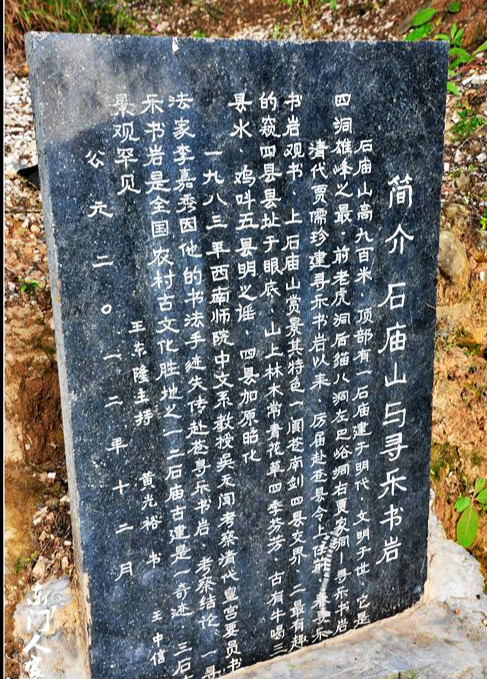 简介 石庙山与寻乐书岩
石庙山高九百米，顶部有一石庙建于明代，文明于世，它是
四洞雄峰之最，前老虎洞后猫儿洞左巴峪洞右贾家洞，寻乐书岩
清代贾儒珍建寻乐书岩以来，历届赴苍县令上任前，来寻乐
书岩观书，上石庙山赏景其特色一阆苍南剑四县交界，二最有趣
的窥四县县址于眼底，山上林木常青花草四季芬芳，古有牛喝三
县水，鸡叫五县明之谣 四县加原昭化
一九八三年西南师院中文系教授吴天闻考察清代皇宫要员书
法家李嘉秀因他的书法手迹失传赴苍寻乐书岩，考察结论，一寻
乐书岩是全国农村古文化胜地之一二石庙古建是一奇迹 三石
景观罕见
王东隆主持 黄光裕 书 王中信
公元二〇一二年十二月
东门人家